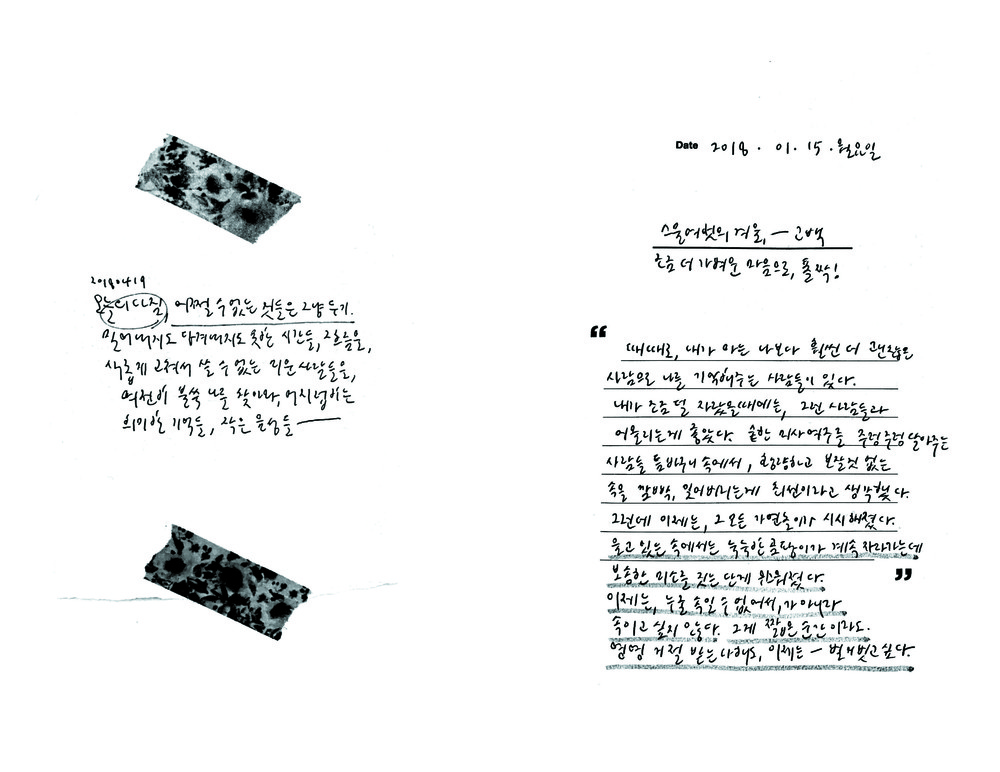 20180419
오늘의 다짐, 어쩔 수 없는 것들은 그냥 두기.
밀어내지도 당겨내지도 못한 시간들, 그 흐름을,
새롭게 고쳐서 쓸 수 없는 미운 사람들을,
여전히 불쑥 나를 찾아와, 어지럽히는
희미한 기억들, 작은 음성들 —
Date 2018. 01. 15. 월요일
스물여덟의 겨울, — 고백
조금 더 가벼운 마음으로, 폴짝!
“
때때로, 내가 아는 나보다 훨씬 더 괜찮은
사람으로 나를 기억해주는 사람들이 있다.
내가 조금 덜 자랐을 때에는, 그런 사람들과
어울리는게 좋았다. 숱한 미사여구를 주렁주렁 달아주는
사람들 틈바구니 속에서, 황량하고 보잘것 없는
속을 깜빡, 잃어버리는게 최선이라고 생각했다.
그런데 이제는, 그 모든 가연출이가 시시해졌다.
울고 있는 속에서는 눅눅한 곰팡이가 계속 자라가는데
보송한 미소를 짓는 단게 우스워졌다.
”
이제는, 누굴 속일 수 없어서, 가 아니라
속이고 싶지 않다. 그게 짧은 순간이라도.
설령 거절 받는다해도, 이제는 — 벌거벗고 싶다.